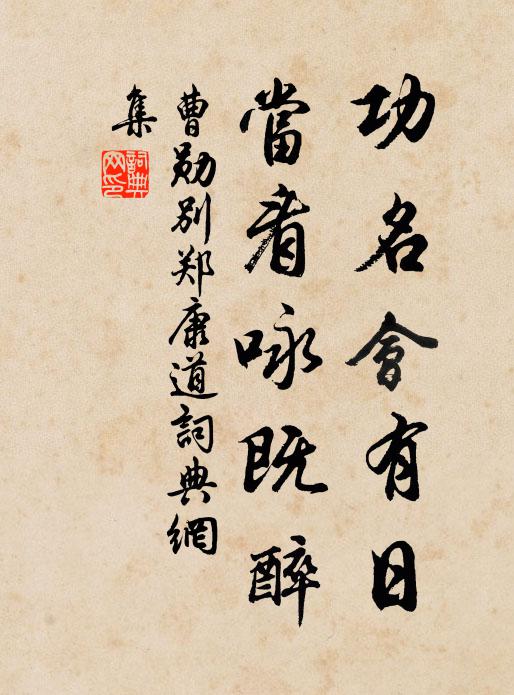 功名會有日
當看咏既醉
曹勛别郑康道詞典網
集
詞典
网印